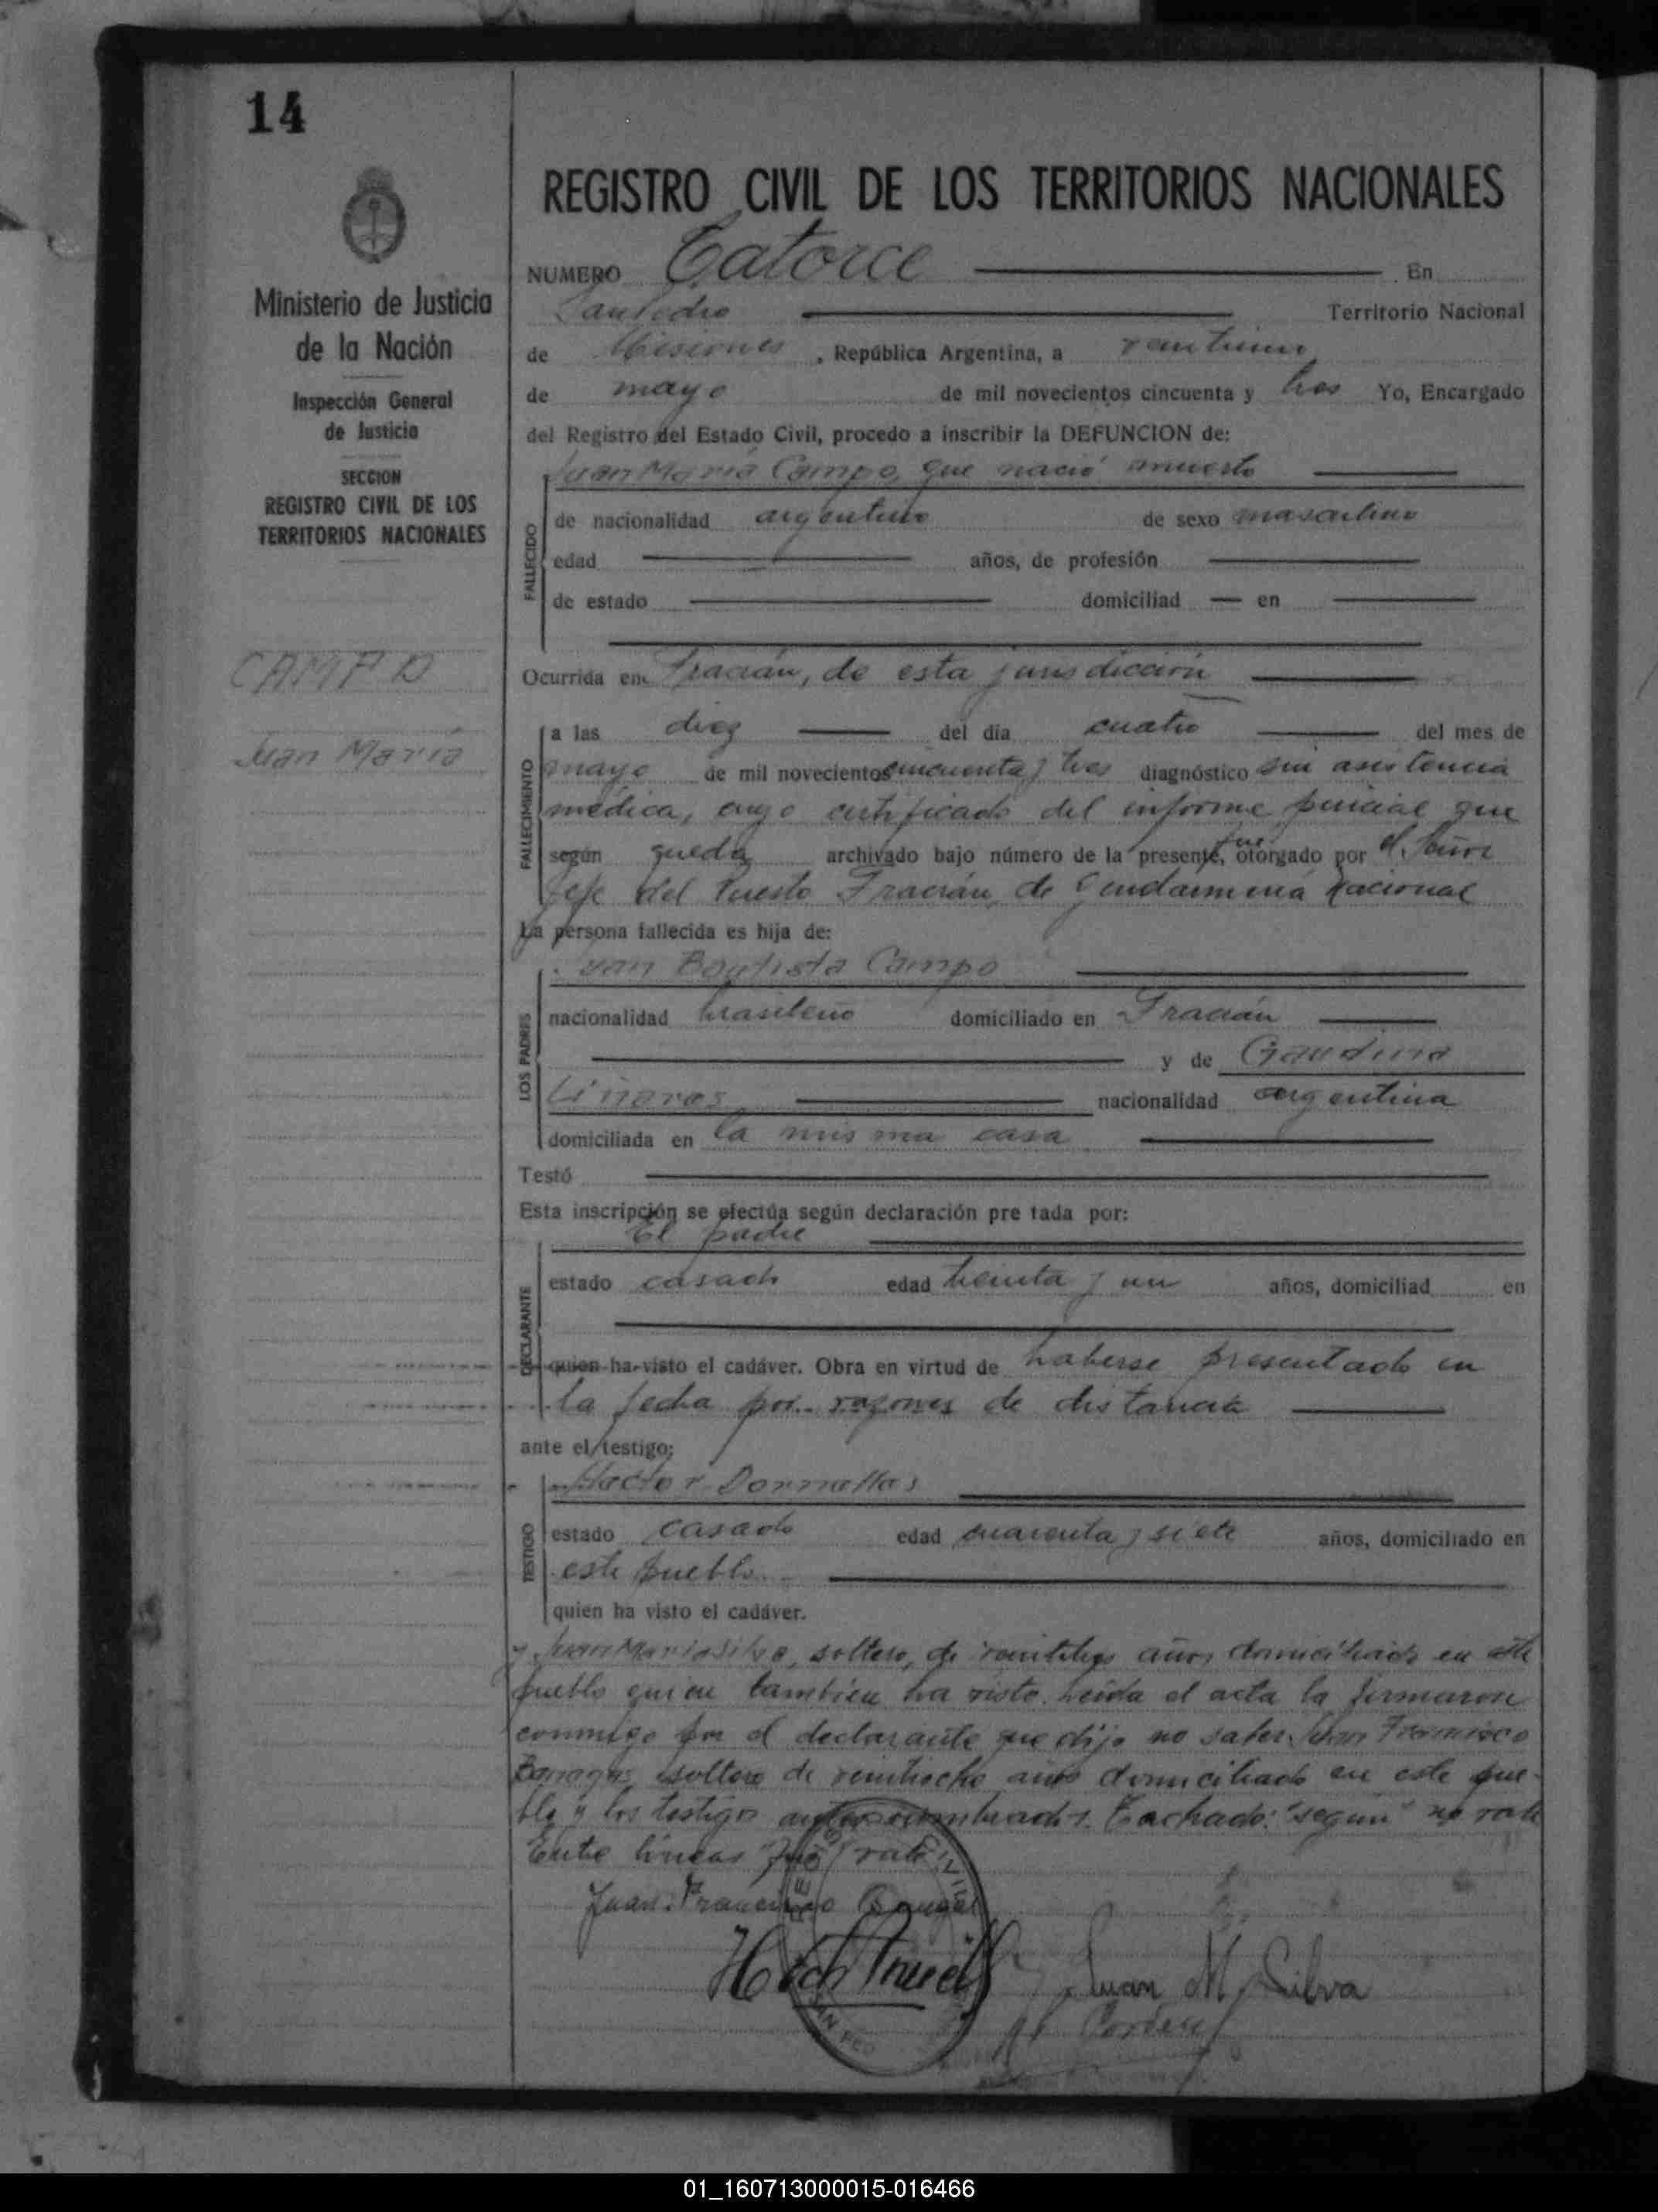 14
Ministerio de Justicia
de la Nación
Inspección General
de Justicia
SECCION
REGISTRO CIVIL DE LOS
TERRITORIOS NACIONALES
CAMPO
Juan María
REGISTRO CIVIL DE LOS TERRITORIOS NACIONALES
NUMERO Catorce En
San Pedro Territorio Nacional
de Misiones, República Argentina, a veintiuno
de mayo de mil novecientos cincuenta y tres Yo, Encargado
del Registro del Estado Civil, procedo a inscribir la DEFUNCION de:
Juan María Campo, que nació muerto
FALLECIDO
de nacionalidad argentino de sexo masculino
edad años, de profesión
de estado domiciliad — en
Ocurrida en Fracrán, de esta jurisdicción
FALLECIMIENTO
a las diez del día cuatro del mes de
mayo de mil novecientos cincuenta y tres diagnóstico sin asistencia
médica, cuyo certificado del informe policial que
según queda archivado bajo número de la presente, fué otorgado por el Señor
Jefe del Puesto Fracrán, de Gendarmería Nacional
La persona fallecida es hija de:
LOS PADRES
Juan Bautista Campo
nacionalidad brasileño domiciliado en Fracrán
y de Gaudina
Liñares nacionalidad argentina
domiciliada en la misma casa
Testó
Esta inscripción se efectúa según declaración pre tada por:
El padre
DECLARANTE
estado casado edad treinta y un años, domiciliad en
quien ha visto el cadáver. Obra en virtud de haberse presentado en
la fecha por razones de distancia
ante el testigo:
TESTIGO
Hector Dornelles
estado casado edad cuarenta y siete años, domiciliado en
este pueblo.
quien ha visto el cadáver.
y Juan María Silva, soltero, de veintitres años domiciliado en este
pueblo quien también ha visto. Leída el acta la firmaron
conmigo por el declarante que dijo no saber Juan Francisco
soltero de veintiocho años domiciliado en este pue-
blo y los testigos antes nombrados. Tachado: "según" no vale
Entre líneas fué vale
Juan Francisco
Juan M Silva
01_160713000015-016466